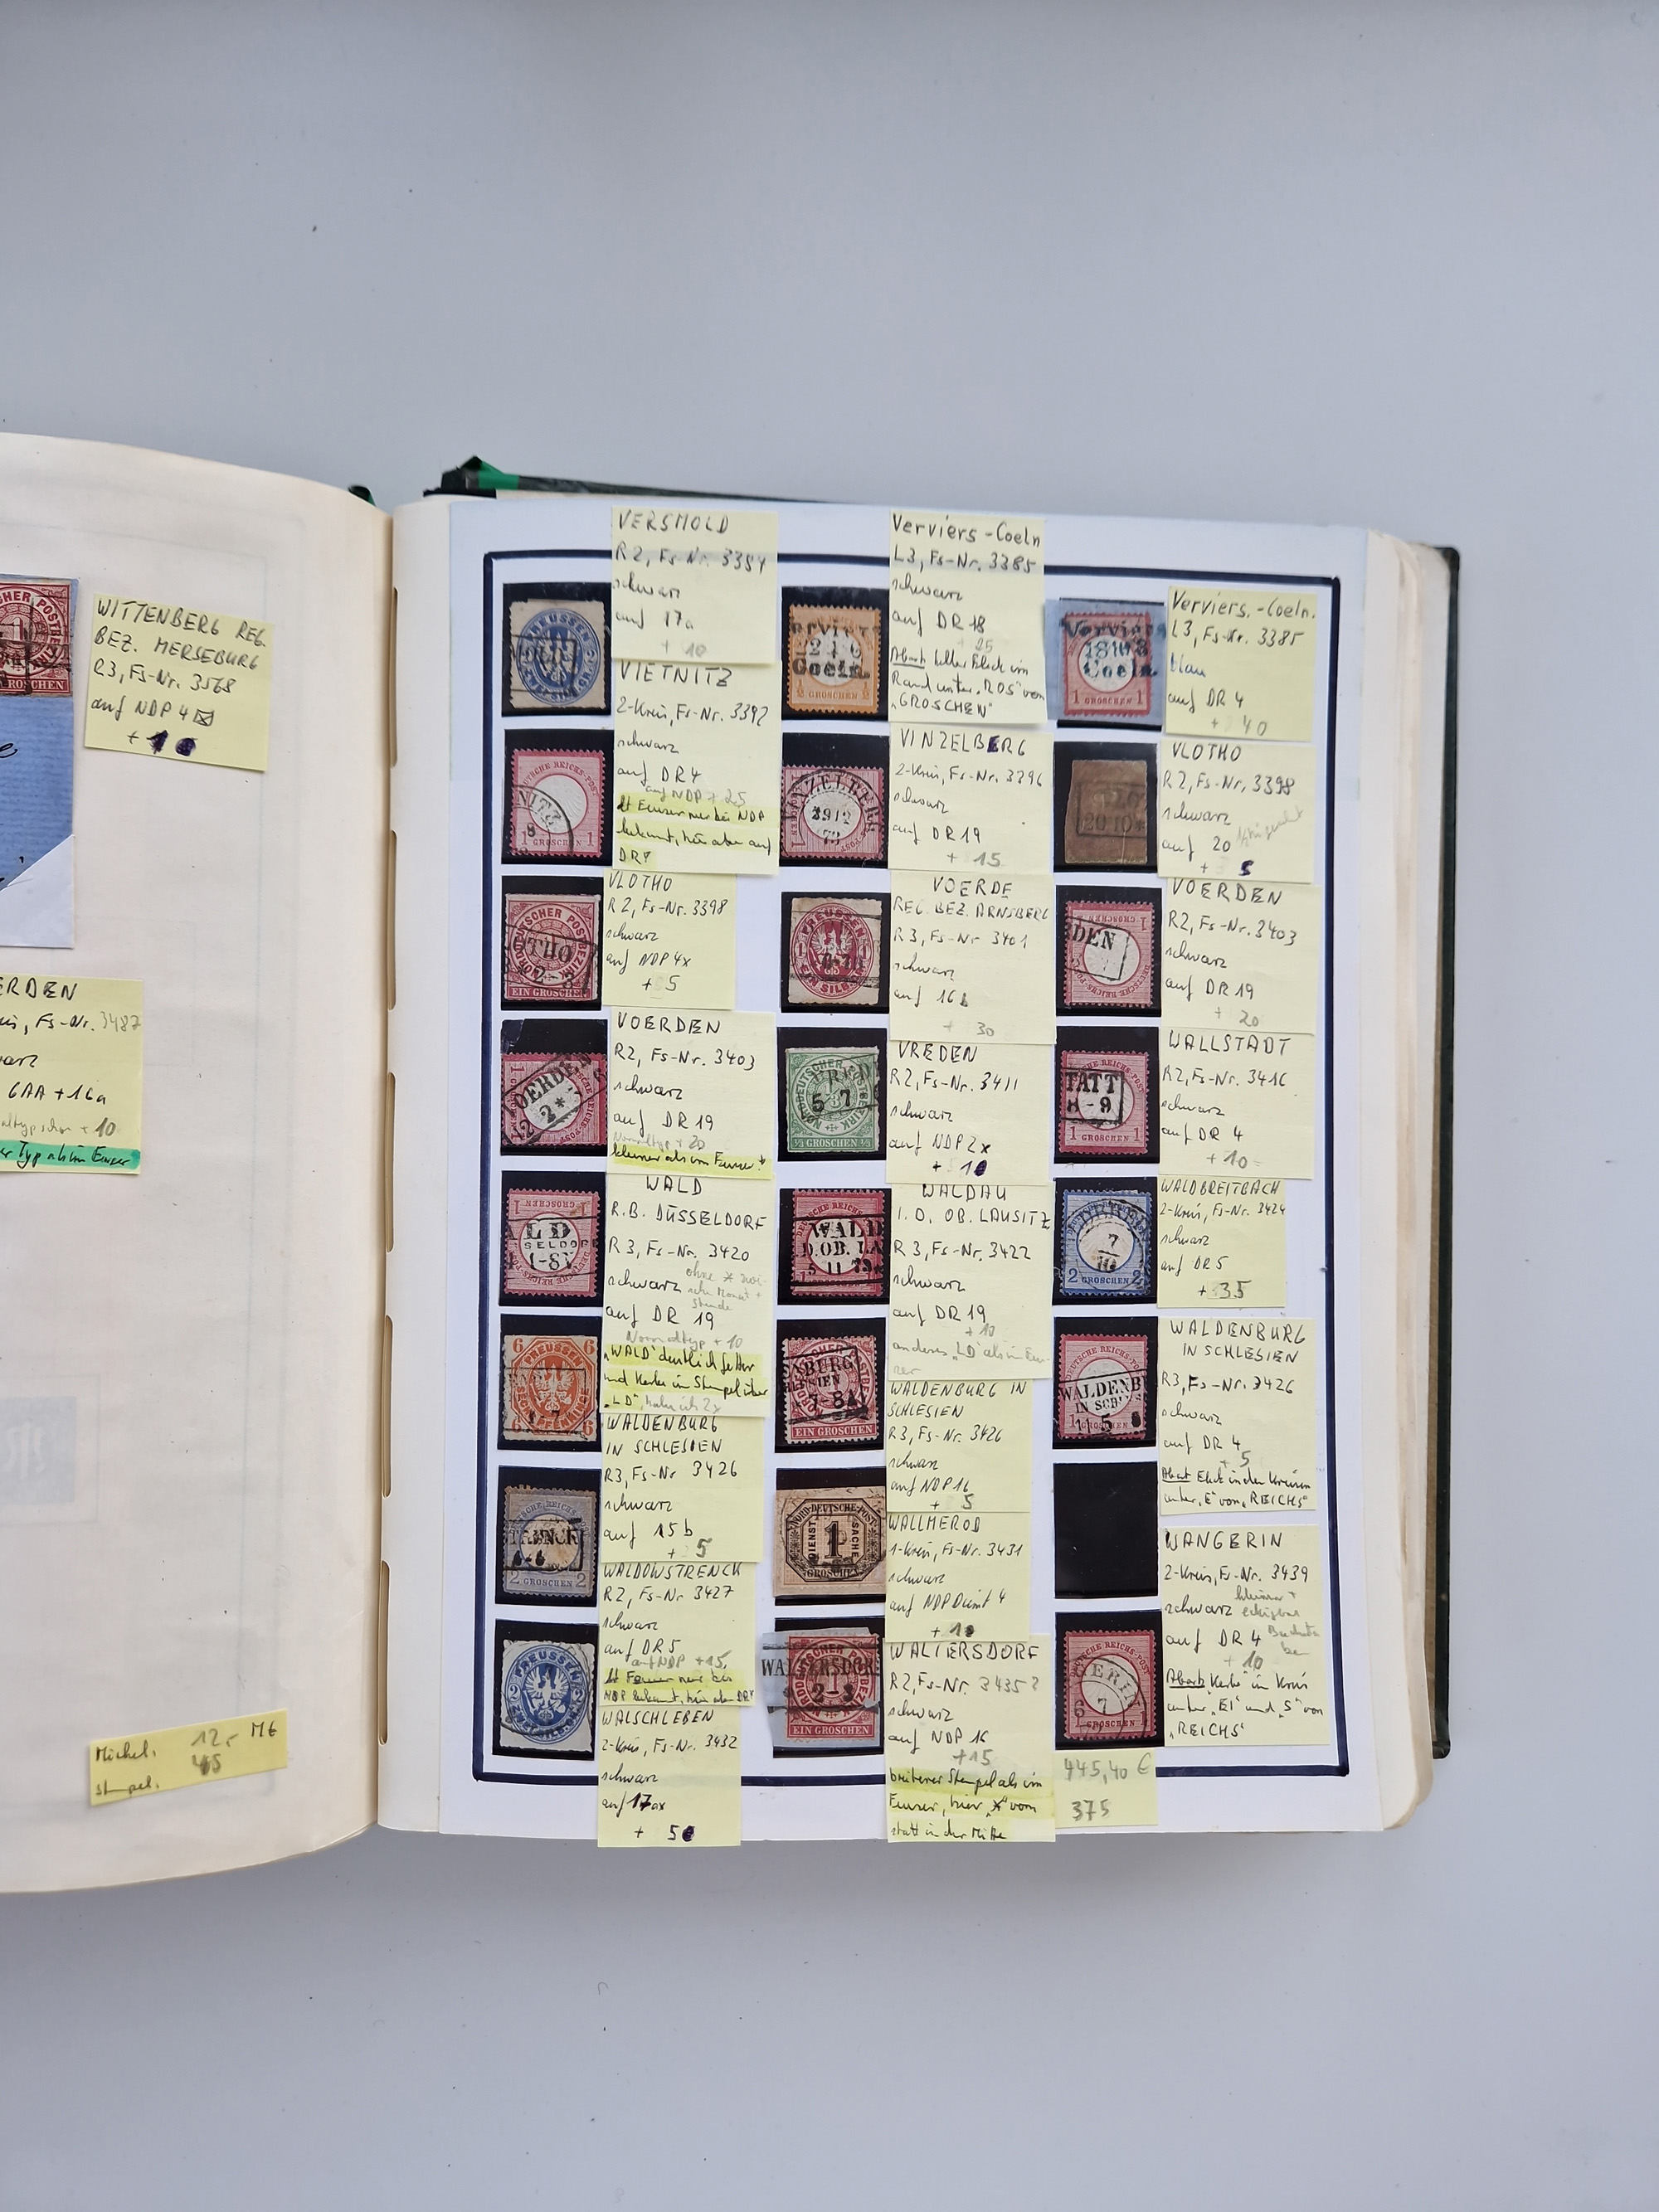 WITTENBERG REG.
BEZ. MERSEBURG
R3, Fs-Nr. 3568
auf NDP 4
ERDEN
Fs-Nr. 3487
6AA + 16a
+ 10
Michel. 12,- M€
Stempel. 45
VERSMOLD
R2, Fs-Nr. 3384
schwarz
auf 17a
+ 10
VIETNITZ
2-Kreis, Fs-Nr. 3392
schwarz
auf DR4
auf NDP + 25
lt Feuser nur bei NDP
bekannt, hier aber auf
DR!
VLOTHO
R2, Fs-Nr. 3398
schwarz
auf NDP 4x
+ 5
VOERDEN
R2, Fs-Nr. 3403
schwarz
auf DR 19
Normaltyp + 20
kleiner als im Feuser!
WALD
R.B. DÜSSELDORF
R3, Fs-Nr. 3420
schwarz ohne * zwi-
schen Monat +
Stunde
auf DR 19
Normaltyp + 10
"WALD" deutlich fetter
und Kerbe im Stempel über
"LD", hab ich 2x
WALDENBURG
IN SCHLESIEN
R3, Fs-Nr 3426
schwarz
auf 15b
+ 5
WALDOWSTRENCK
R2, Fs-Nr 3427
schwarz
auf DR5
auf NDP +15,
lt Feuser nur bei
NDP bekannt, hier aber DR!
WALSCHLEBEN
2-Kreis, Fs-Nr. 3432
schwarz
auf 17ax
+ 50
Verviers-Coeln
L3, Fs-Nr. 3385
schwarz
auf DR 18
+ 25
Abart heller Fleck im
Rand unter "ROS" von
"GROSCHEN"
VINZELBERG
2-Kreis, Fs-Nr. 3396
schwarz
auf DR 19
+ 15
VOERDE
REG. BEZ. ARNSBERG
R3, Fs-Nr 3401
schwarz
auf 16
+ 30
VREDEN
R2, Fs-Nr. 3411
schwarz
auf NDP 2x
+ 10
WALDAU
I. D. OB. LAUSITZ
R3, Fs-Nr. 3422
schwarz
auf DR 19
+ 10
anderes "LD" als im Feu-
ser
WALDENBURG IN
SCHLESIEN
R3, Fs-Nr. 3426
schwarz
auf NDP 16
+ 5
WALLMEROD
1-Kreis, Fs-Nr. 3431
schwarz
auf NDP Dienst 4
+ 10
WALTERSDORF
R2, Fs-Nr. 3435?
schwarz
auf NDP 16
+15
breiterer Stempel als im
Feuser, hier "*" vorn
statt in der Mitte
Verviers.-Coeln.
L3, Fs-Nr. 3385
blau
auf DR 4
+ 40
VLOTHO
R2, Fs-Nr. 3398
schwarz
auf 20
+ 5
VOERDEN
R2, Fs-Nr. 3403
schwarz
auf DR 19
+ 20
WALLSTADT
R2, Fs-Nr. 3416
schwarz
auf DR 4
+10
WALDBREITBACH
2-Kreis, Fs-Nr. 3424
schwarz
auf DR5
+ 35
WALDENBURG
IN SCHLESIEN
R3, Fs-Nr. 3426
schwarz
auf DR 4
+ 5
Abart
unter "E" von "REICHS"
WANGERIN
2-Kreis, Fs-Nr. 3439
schwarz kleinere +
eckigere
Buchsta
ben
auf DR 4
+ 10
Abart Kerbe im Kreis
unter "EI" und "S" von
"REICHS"
445,40 €
375
PREUSSEN
Verviers
Coeln.
GROSCHEN
Verviers
Coeln.
1 GROSCHEN 1
VINZELBERG
EIN GROSCHEN
PREUSSEN
DEN
5 7
1/3 GROSCHEN 1/3
TATT
8-9
1 GROSCHEN 1
SELDORF
WALD
D.OB. LA
2 GROSCHEN 2
6 PREUSSEN 6
EIN GROSCHEN
WALDENB
IN SCHL
2 GROSCHEN 2
NORD-DEUTSCHE-POST
DIENST SACHE
1
GROSCHEN
PREUSSEN
WALTERSDORF
2-3
EIN GROSCHEN
GERIN
GROSCHEN